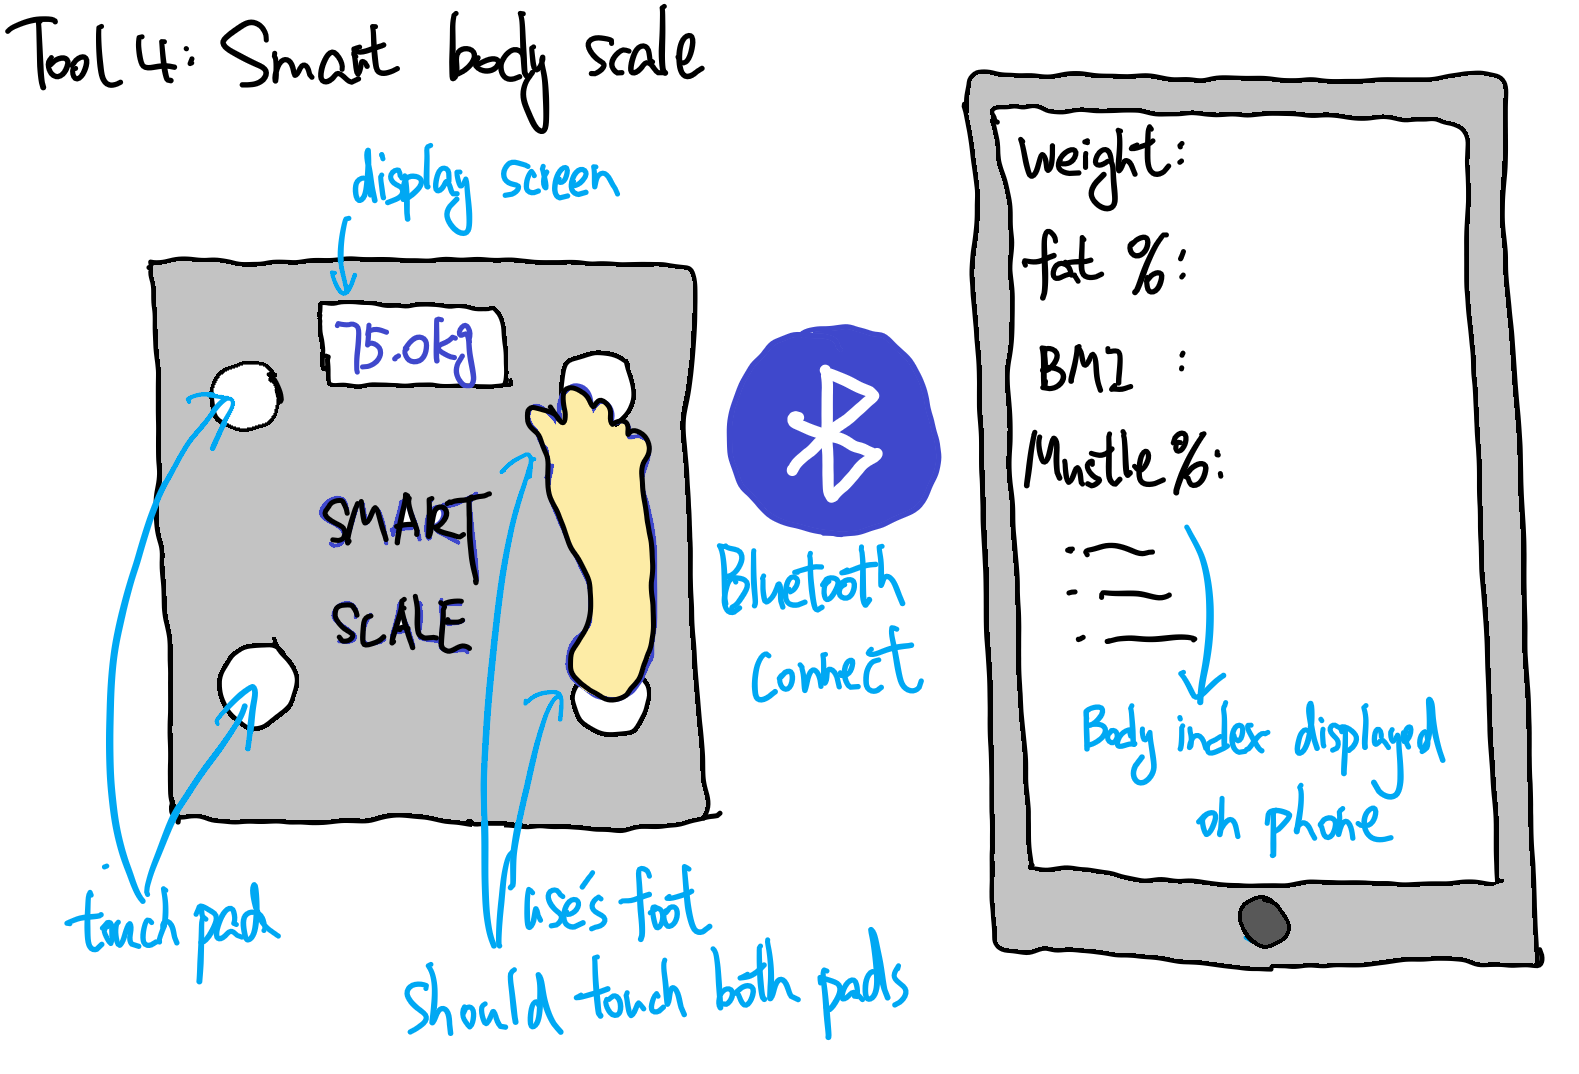 Tool 4: Smart body scale
display screen
75.0kg
SMART
SCALE
touch pad
use's foot
should touch both pads
Bluetooth
Connect
Weight:
fat %:
BMI :
Mustle %:
Body index displayed
on phone